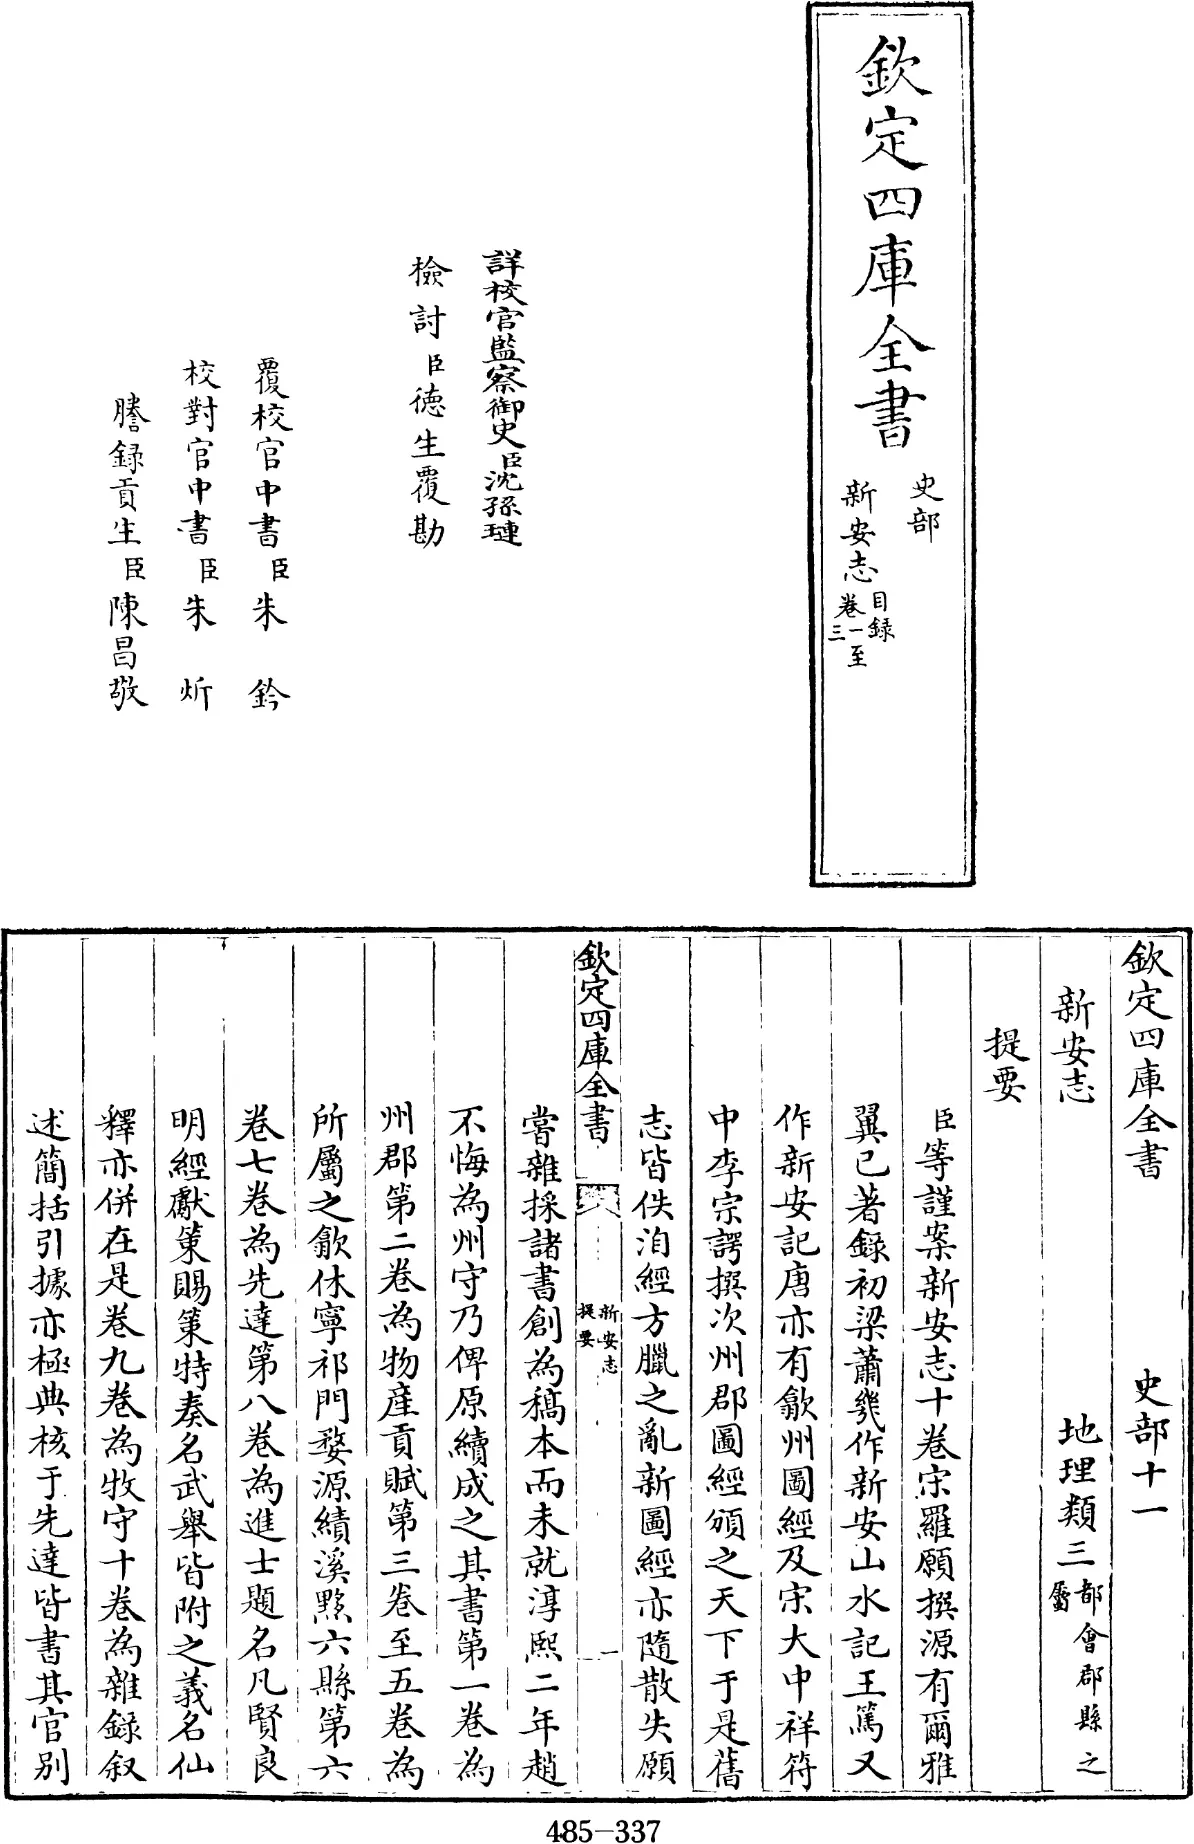 欽定四庫全書
史部
新安志
目録
卷一至
三
詳校官監察御史臣沈孫璉
檢討臣德生覆勘
覆校官中書臣朱鈐
校對官中書臣朱炘
謄錄貢生臣陳昌敬
欽定四庫全書 史部十一
新安志 地理類三都會郡縣之屬
提要
臣等謹案新安志十卷宋羅願撰源有爾雅
翼已著錄初梁蕭幾作新安山水記王篤又
作新安記唐亦有歙州圖經及宋大中祥符
中李宗諤撰次州郡圖經頒之天下于是舊
志皆佚洎經方臘之亂新圖經亦隨散失願
欽定四庫全書
新安志
提要
一
嘗雜採諸書創為稿本而未就淳熙二年趙
不悔為州守乃俾原續成之其書第一卷為
州郡第二卷為物産貢賦第三卷至五卷為
所屬之歙休寧祁門婺源績溪黟六縣第六
卷七卷為先達第八卷為進士題名凡賢良
明經獻策賜第特奏名武舉皆附之義名仙
釋亦併在是卷九卷為牧守十卷為雜錄叙
述簡括引據亦極典核于先達皆書其官别
485-337